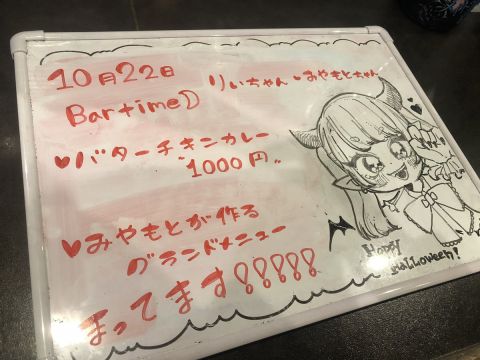 10月22日
りぃちゃん♥みやもとちゃん
Bartime☽
♥バターチキンカレー
"1000円"
♥みやもとが作る
グランドメニュー
まってます!!!!!
Happy
Halloween!